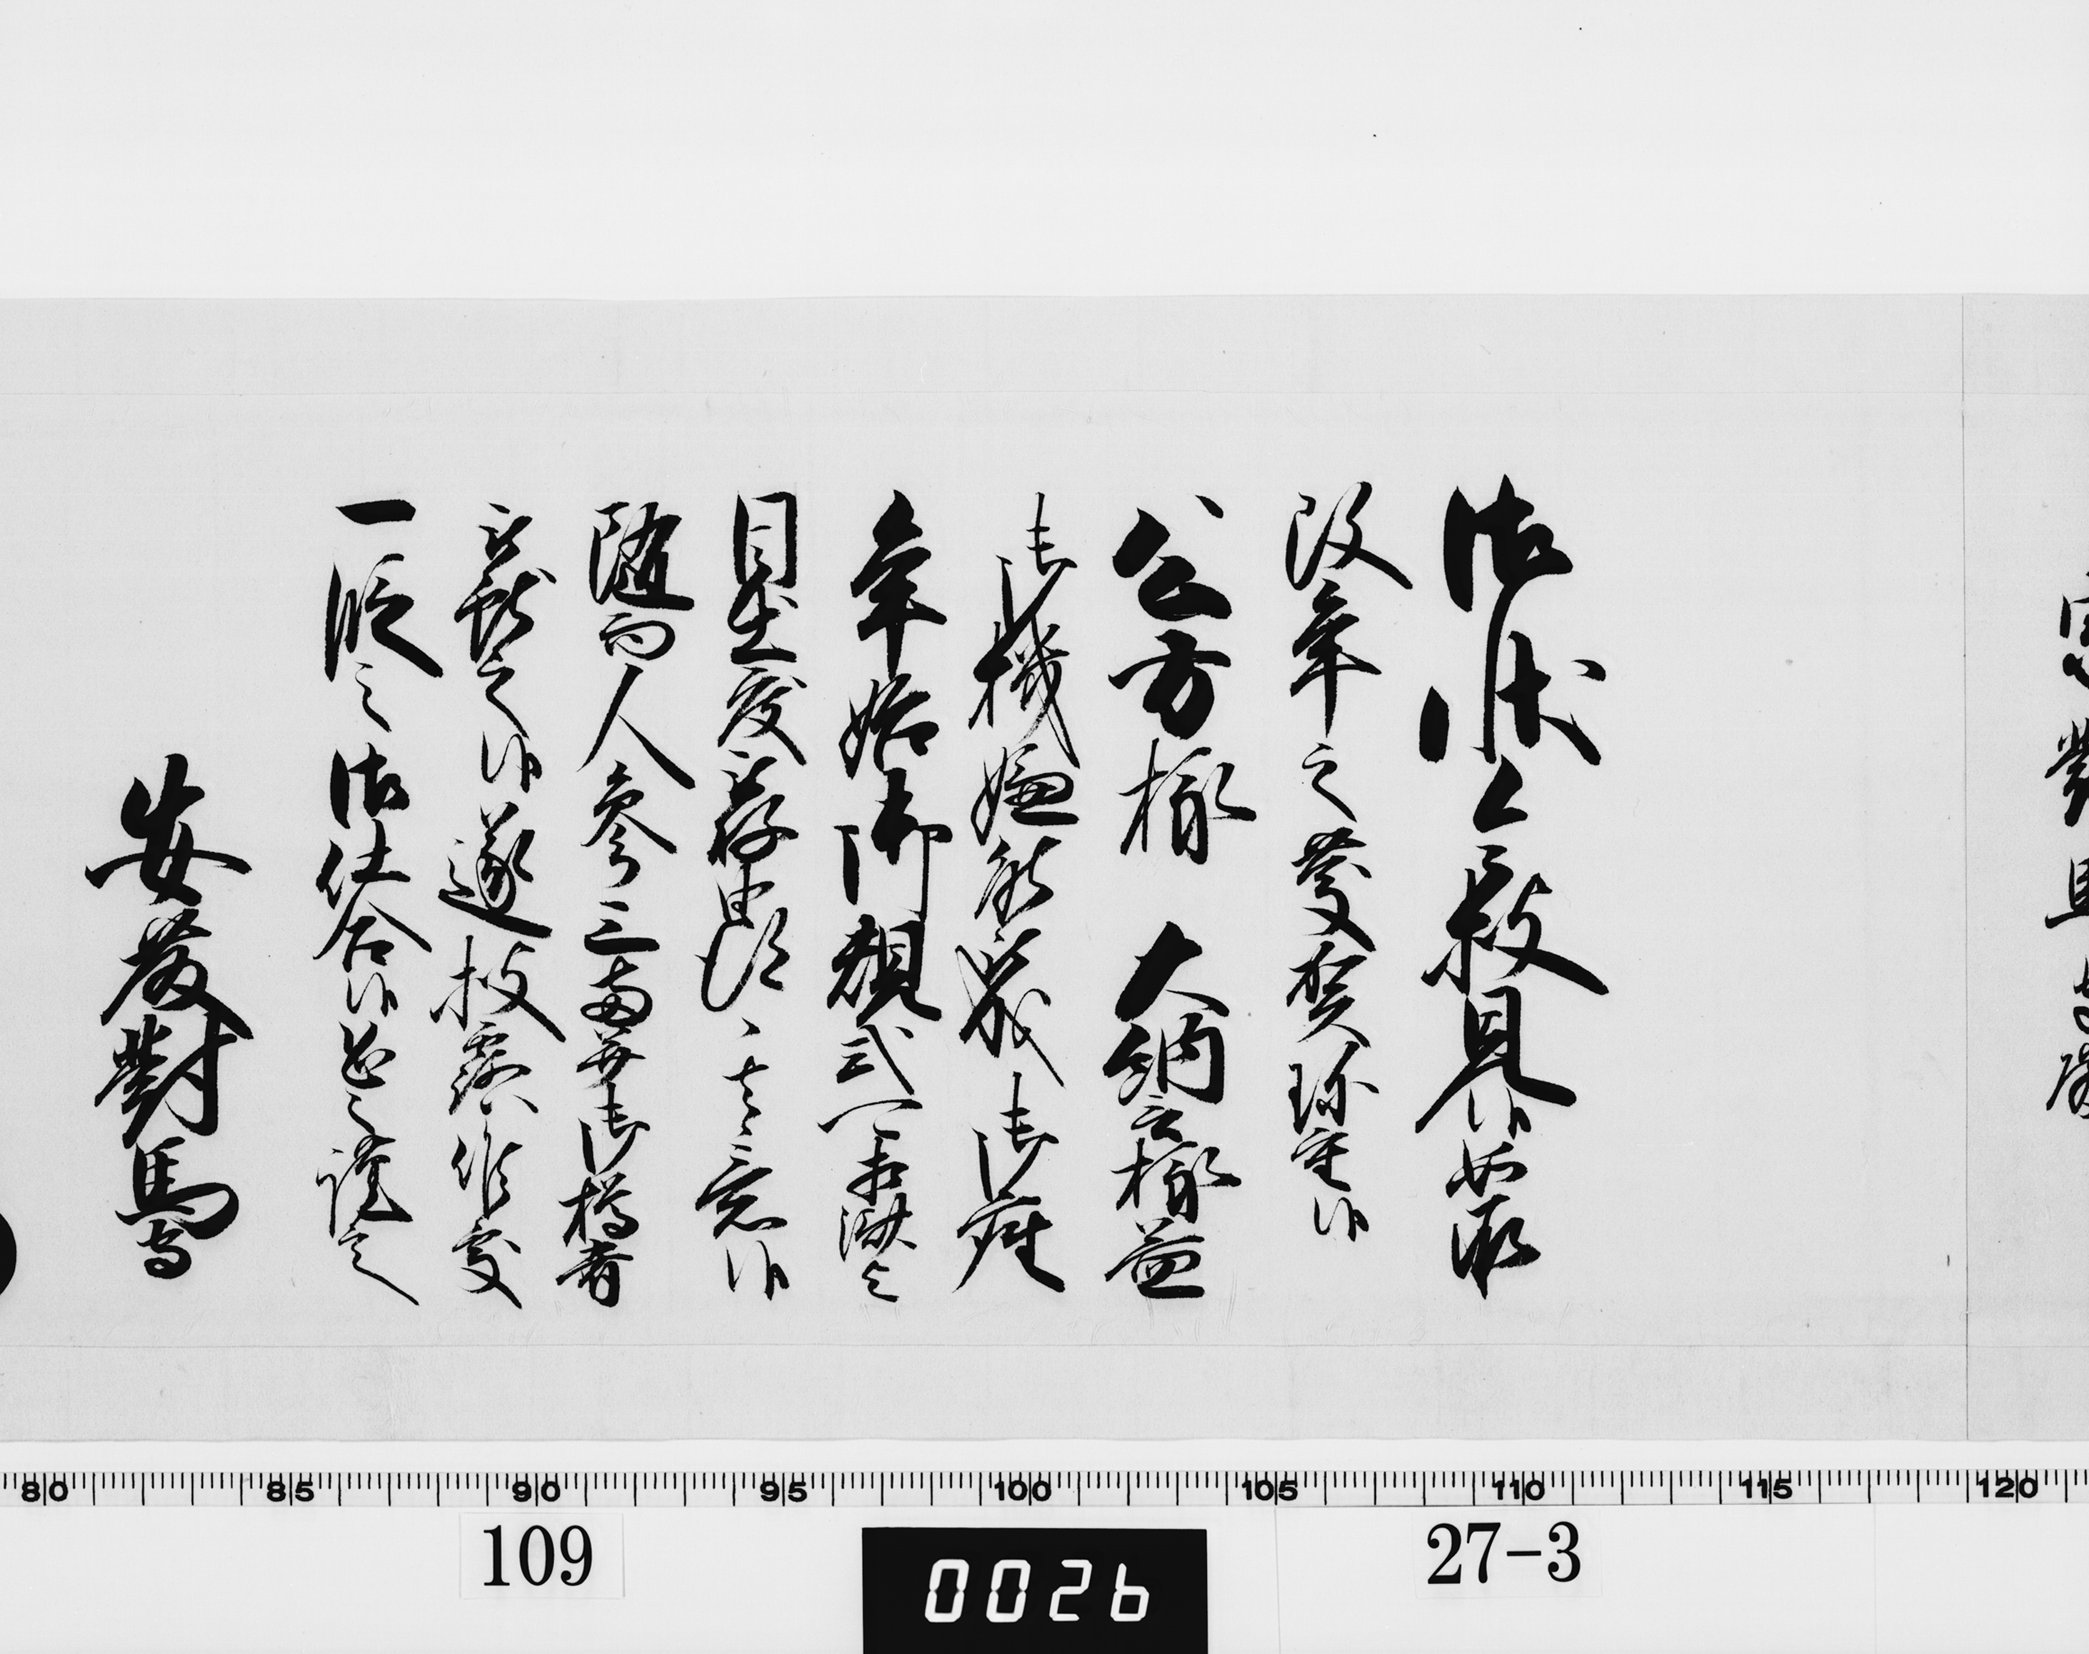 御状令披見候如承
改年之慶賀珎重候
公方様 大納言様益
御機嫌能被成御座
年始御規式可相済与
目出度被存由得其意候
随而人参三両并御樽肴
被献之候遂披露候処
一段之御仕合候恐々謹言
安藤對馬守
80 85 90 95 100 105 110 115 120
109
0026
27-3